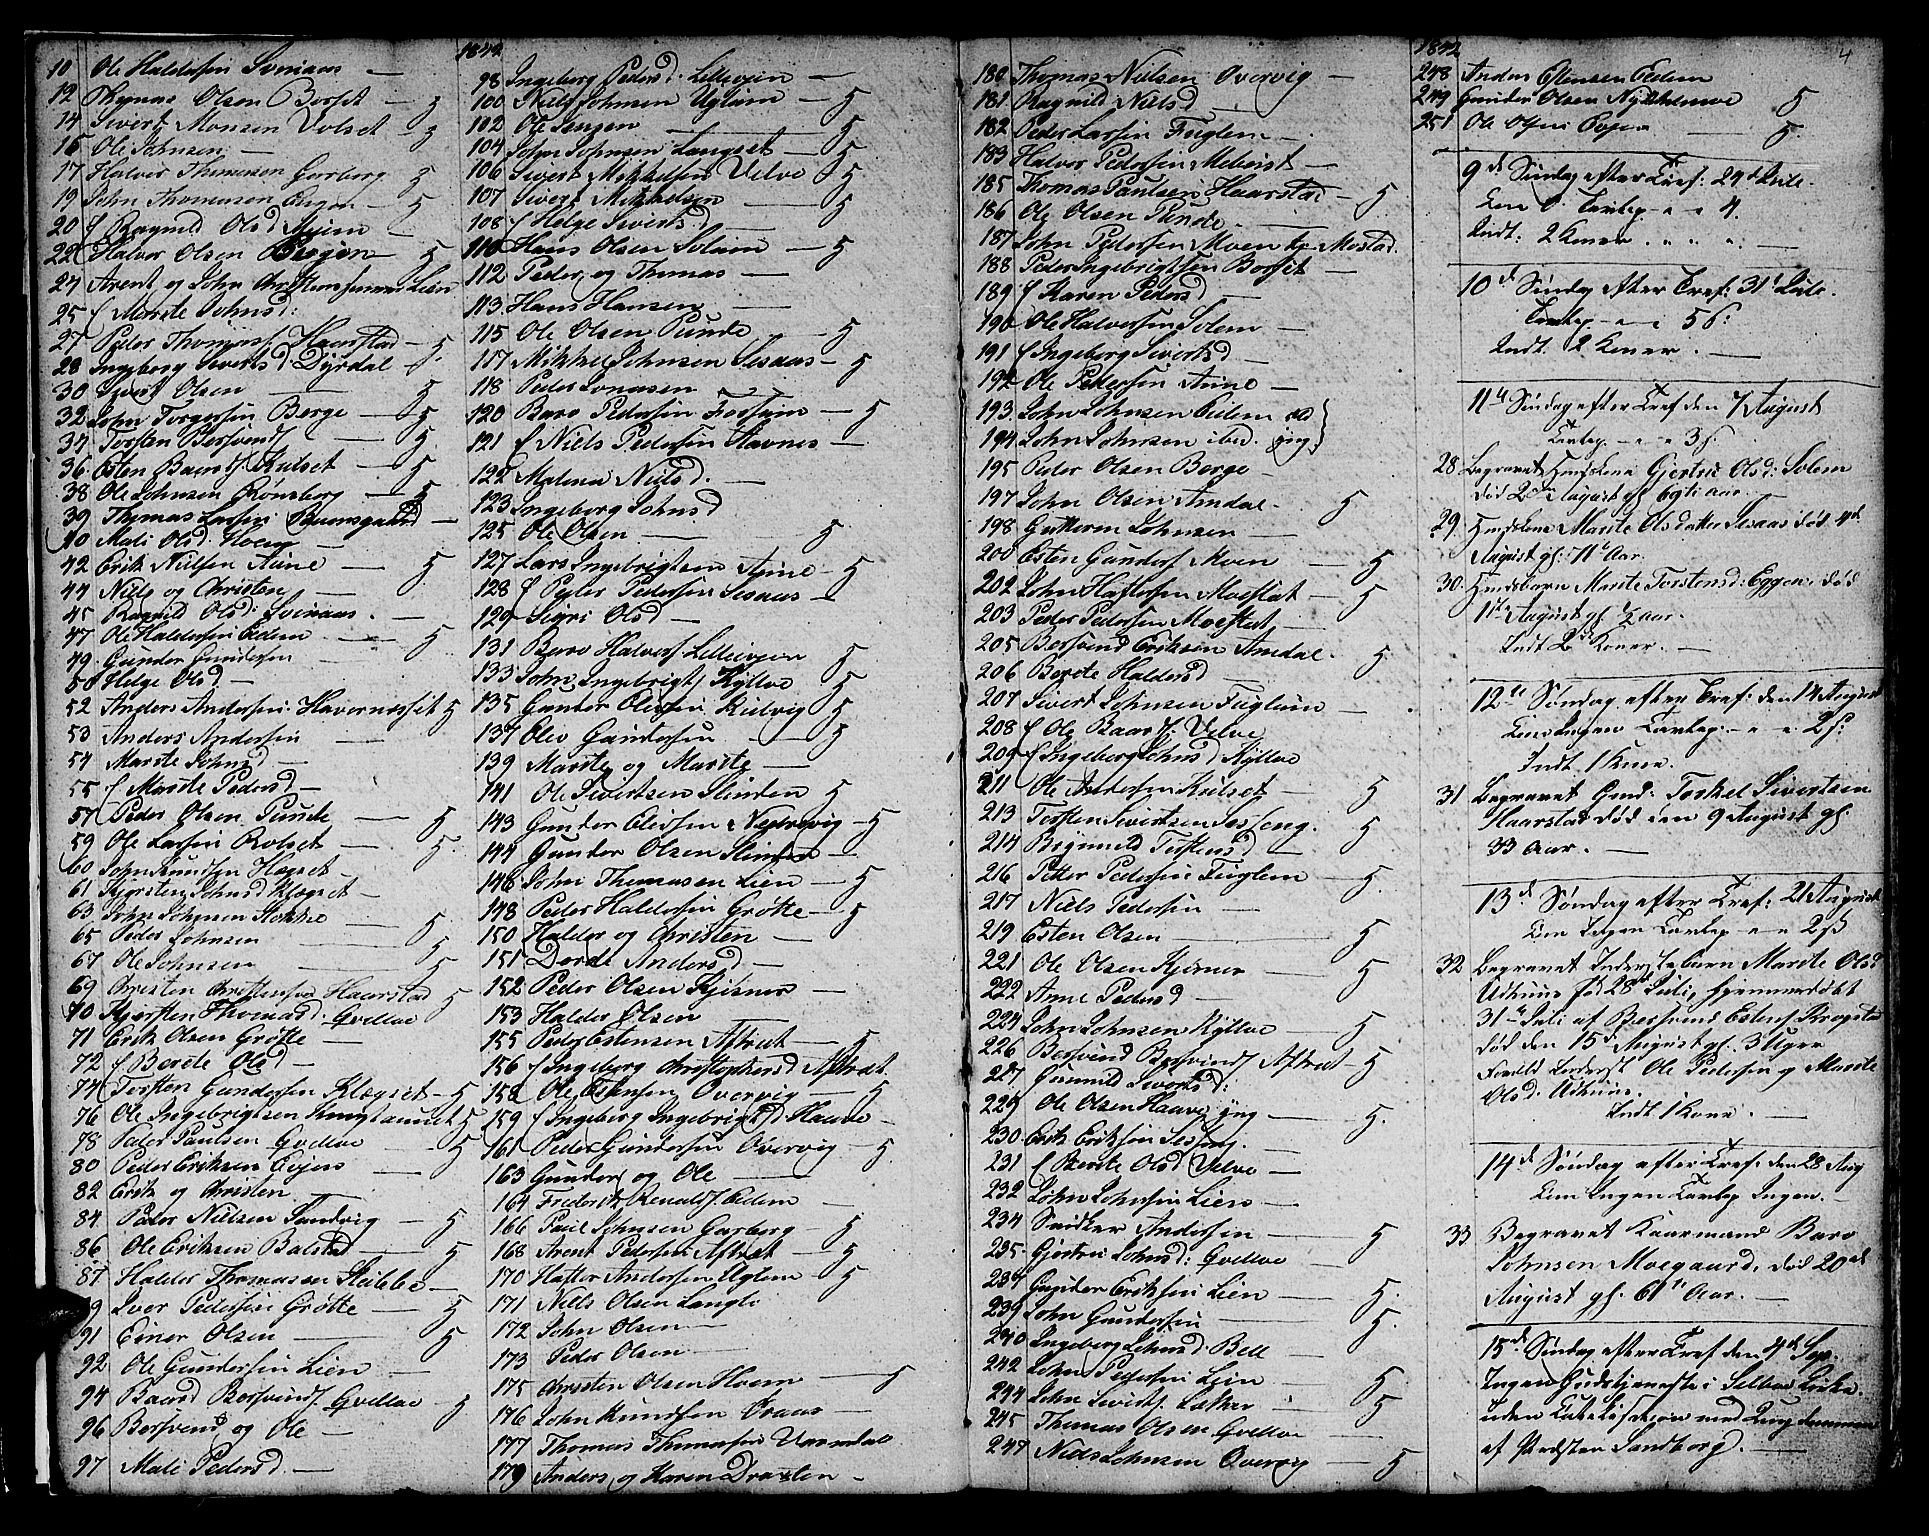 1842
10 Ole Haldorsen
12 Thomas Olsen Borset — 5
14 Sivert Monsen Volset — 5
16 Ole Johnsen —
17 Halvor Thomesen Garberg 5
19 John Thomasen Evjen — 5
20 f Ragnild Olsd. —
22 Halvor Olsen Evjen — 5
24 Arent og John Lien
25 f Marite Johnsd:
27 Peder Thomas Haarstad — 5
28 Ingeborg Sivertsd Dyrdal —
30 Sivert Olsen — 5
32 John Torgersen Berge — 5
34 Torsten Bersvends — 5
36 Esten Baards. Kulset — 5
38 Ole Johnsen Rønsberg — 5
39 Thomas Larsen —
40 Mali Olsd. Hoem —
42 Erik Nielsen Aune — 5
44 Niels og Christen —
45 Ragnild Olsd: —
47 Ole Haldorsen Eidem — 5
49 Gunder Gundersen —
50 Helge Olsd —
52 Anders Andersen Havernesset 5
53 Anders Andersen —
54 Marite Johnsd —
55 f Marite Pedersd —
57 Peder Olsen Punde — 5
59 Ole Larsen Rolset — 5
60 John Knudsen Hegset —
61 Kjersten Johnsd Klegset —
63 John Johnsen Stokke — 5
65 Peder Johnsen — 5
67 Ole Johnsen — 5
69 Christen Christensen Haarstad 5
70 Kjersten Thomasd. Qvelloe
71 Erik Olsen Grøtte —
72 f Berete Olsd —
74 Torsten Gundersen Klegset — 5
76 Ole Ingebrigtsen 5
78 Peder Paulsen Qvelloe — 5
80 Peder Eriksen Evjen — 5
82 Erik og Christen —
84 Peder Nielsen Sandvig — 5
86 Ole Eriksen Balstad — 5
87 Haldor Thomassen Stubbe —
89 Iver Pedersen Grøtte — 5
91 Einer Olsen — 5
92 Ole Gundersen Lien —
94 Baard Bersvends. Qvelloe — 5
96 Bersvend og Ole —
97 Mali Pedersd. —
98 Ingeborg Pedersd. Lillevjen —
100 Niels Johnsen Uglem — 5
102 Ole Jensen — 5
104 John Johnsen Langset — 5
106 Sivert Mikkelsen Velve 5
107 Sivert Mikkelsen — 5
108 f Helge Sivertsd —
110 Hans Olsen Solem — 5
112 Peder og Thomas —
113 Hans Hansen —
115 Ole Olsen Punde — 5
117 Mikkel Johnsen Sesaas — 5
118 Peder Jonasen
120 Baro Pedersen Fossum — 5
121 f Niels Pedersen Stavnes —
122 Malena Nielsd. —
123 Ingeborg Johnsd
125 Ole Olsen — 5
127 Lars Ingebrigtsen Aune — 5
128 f Peder Pedersen Sesaas —
129 Sigri Olsd —
131 Baro Halvors. Lillevjen 5
133 John Ingebrigts Kyllve 5
135 Gunder Olsen Rolvig 5
137 Olev Gundersen — 5
139 Marite og Marite —
141 Ole Sivertsen Slinden 5
143 Gunder Olevsen Nervig — 5
144 Gunder Olsen Slinden —
146 John Thomasen Lien — 5
148 Peder Haldorsen Grøtte — 5
150 Haldor og Christen —
151 Dorde Andersd —
152 Peder Olsen Kjøsner —
153 Haldor Olsen —
155 Peder Estensen Aftret — 5
156 f Ingeborg Christophersd Aftret
158 Ole Estensen Overvig — 5
159 f Ingeborg Ingebrigtsd Hauve
161 Peder Gundersen Overvig — 5
163 Gunder og Ole —
164 Frederik Eidem —
166 Paul Johnsen Garberg 5
168 Arent Pedersen Aftret — 5
170 Hafter Andersen Uglem — 5
171 Niels Olsen Langli
172 John Olsen —
173 Peder Olsen —
175 Christen Olsen Hoem — 5
176 John Knudsen —
177 Thomas Thomesen
179 Anders og Karen Draxten —
180 Thomas Nielsen Overvig —
181 Ragnild Nielsd —
182 Peder Larsen Fuglem —
183 Halvor Pedersen Mebust —
185 Thomas Paulsen Haarstad — 5
186 Ole Olsen Punde —
187 John Pedersen Moen Mostad.
188 Peder Ingebrigtsen Borset —
189 f Karen Pedersd —
190 Ole Halvorsen Solem —
191 f Ingeborg Sivertsd —
192 Ole Pedersen Aune —
193 John Johnsen Eidem
194 John Johnsen ibid. yng
195 Peder Olsen Berge —
197 John Olsen Amdal — 5
198 Guttorm Johnsen —
200 Esten Gunders Moen — 5
202 John Haftorsen Moestat — 5
203 Peder Pedersen Moestat —
205 Bersvend Eriksen Amdal. 5
206 Berete Haldorsd —
207 Sivert Johnsen Fuglem —
208 f Ole Baards. Velve
209 f Ingeborg Johnsd Kyllve
211 Ole Andersen Kulset — 5
213 Torsten Sivertsen Sesseng. 5
214 Torstensd —
216 Petter Pedersen Fuglem — 5
217 Niels Pedersen —
219 Esten Olsen — 5
221 Ole Olsen Kjøsner 5
222 Anne Pedersd —
224 John Johnsen Kyllve — 5
226 Bersvend Bersvends Aftret — 5
227 Gunnild Sivertsd:
229 Ole Olsen Hauve yng — 5.
230 Erik Eriksen Sesseng.
231 f Berete Olsd Velve —
232 John Johnsen Lien —
234 Andersen — 5
235 Gjertru Johnsd: Qvelloe —
237 Gunder Eriksen Lien — 5.
239 John Gundersen — 5.
240 Ingeborg Johnsd Bell —
242 John Pedersen Lien — 5
244 John Siverts. — 5
245 Thomas Olsen Qvelloe —
247 Niels Johnsen Overvig — 5
1842
4
248 Anders Estensen Eidem
249 Gunder Olsen 5
251 Ole Olsen Evjen — 5.
9de Søndag efter Tref: 24de Juli.
4.
Indt: 2 Koner . . . . —
10de Søndag efter Tref: 31te Juli.
5 ß.
Indt. 2 Koner . —
11te Søndag efter Tref den 7 August
3 ß.
28 Begravet Gjertru Olsd: Solem
død 2den August gl. 69 ti Aar —
29. Marite Olsdatter Sesaas død 4de
August gl: 71 te Aar.
30. Marite Torstensd: Eggen død
1te August gl. ½ Aar.
Indt 2 Koner. —
12te Søndag efter Tref: den 14 August
Ingen 2 ß.
Indt 1 Kone.
31 Begravet Torkel Sivertsen
Haarstad død den 9 August gl.
33 Aar. —
13de Søndag efter Tref: 21 August
Ingen 2 ß
32 Begravet Inderstebarn Marite Olsd
Udhuus fød 28de Juli, hjemmedøbt
31te Juli af Bersvend Estens Krogstad
død den 15de August gl. 3 Uger
Forældre Inderst Ole Pedersen og Marite
Olsd. Udhuus.
Indt 1 Kone. —
14de Søndag efter Tref: den 28 Aug
Ingen Ingen. —
33 Begravet Kaarmand Baro
Johnsen Moegaard, død 20de
August gl. 61te Aar. —
15de Søndag efter Tref den 4de Sep.
Ingen Gudstjeneste i Selboe Kirke
uden Katekisation med Ungdommen
af Præsten Sandborg. —